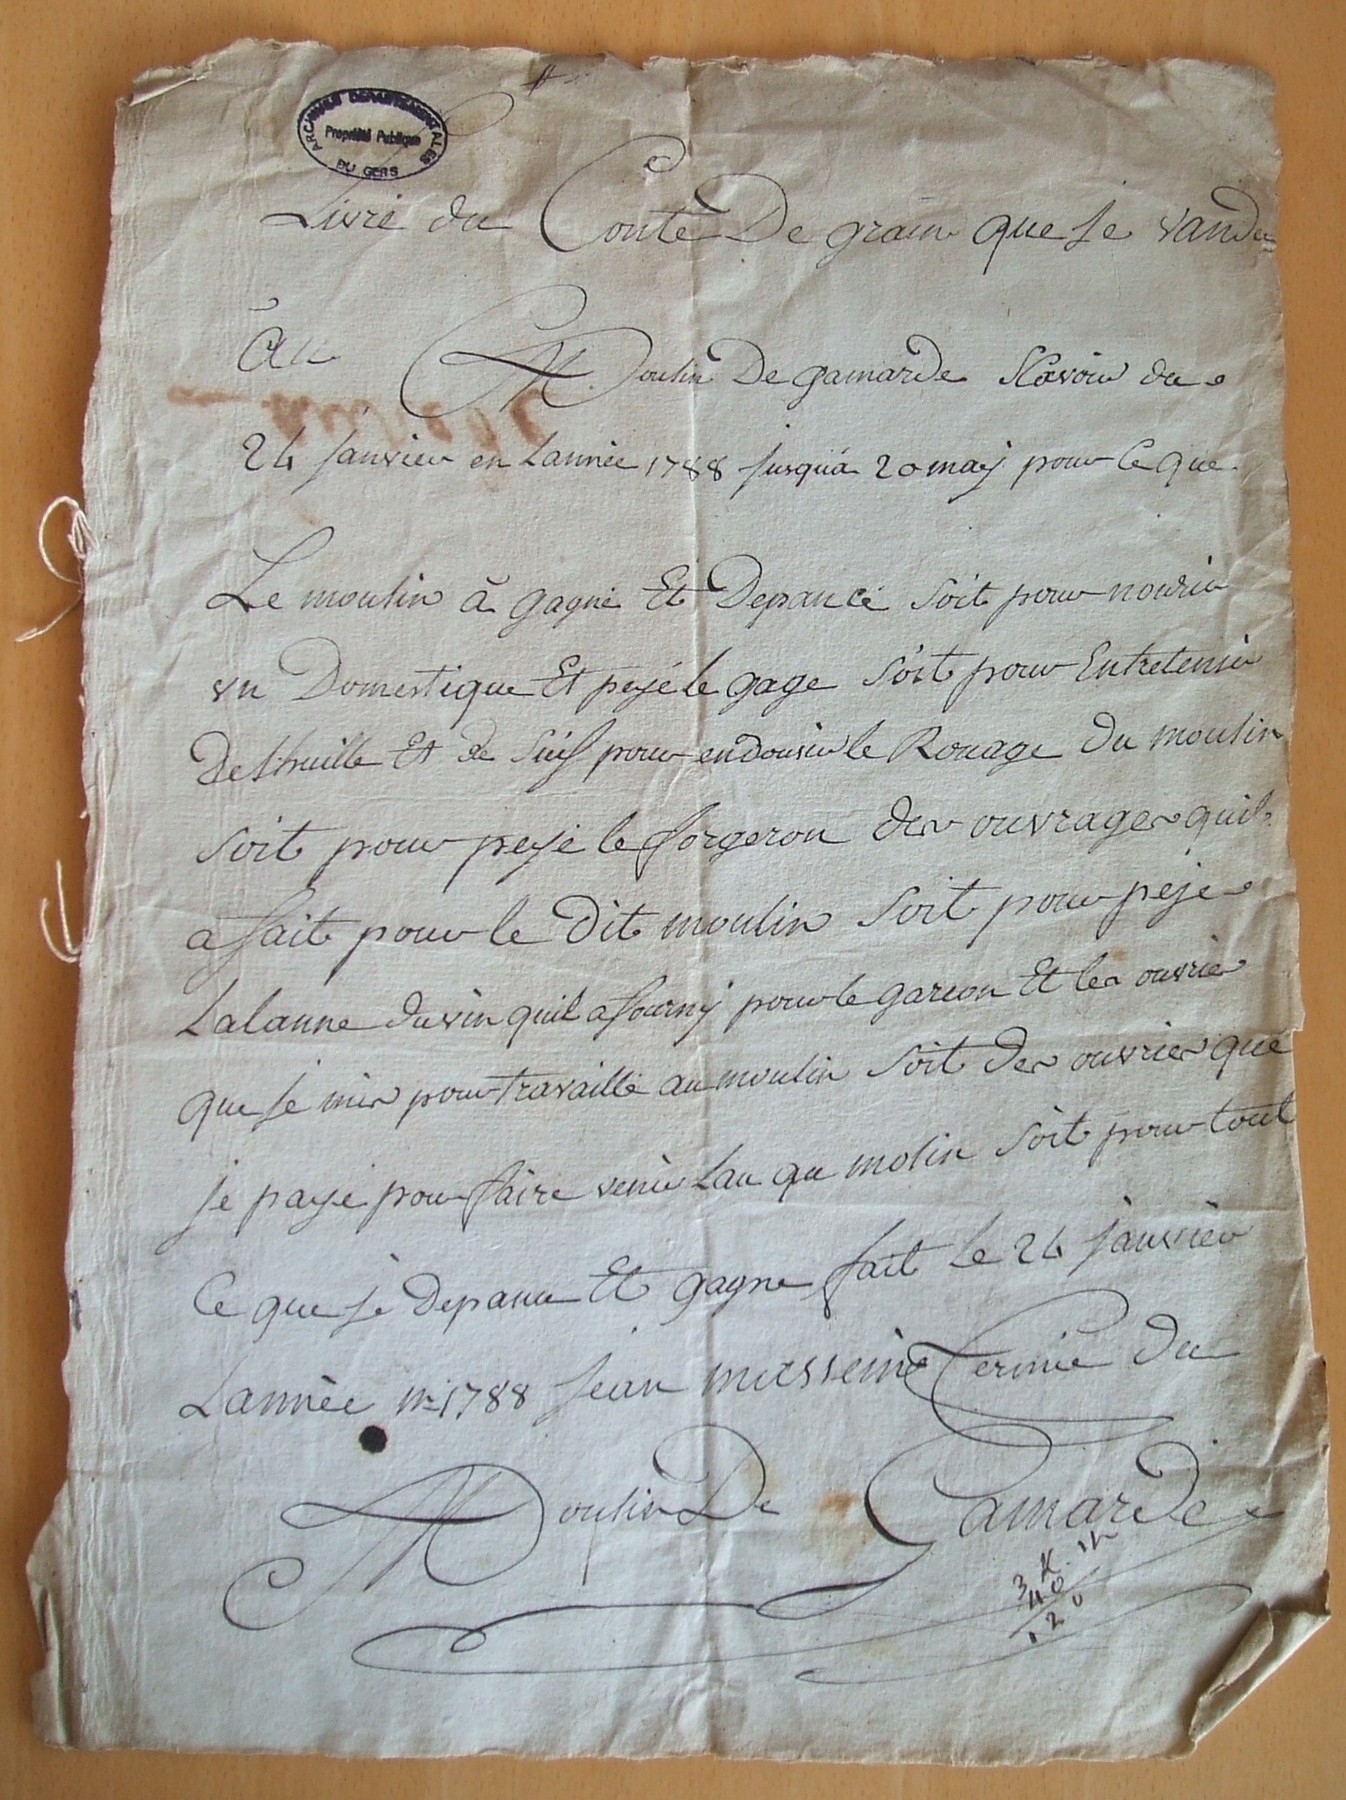 ARCHIVES DEPARTEMENTALES
Propriété Publique
DU GERS
Livre du Conte De grain que Je vandu
Au Moulin De gamarde Scavoir du
24 Janvier en Lannée 1788 Jusqua 20 may pour Ce que
Le moulin à gagné Et Depancé soit pour nourir
un Domestique Et peyé le gage soit pour Entretenir
De Lhuille Et de suif pour endousir le Rouage du moulin
soit pour peyé le forgeron des ouvrages quil
a fait pour le dit moulin soit pour peye
Lalanne du vin quil a fourny pour le garcon Et les ouvrier
que Je mis pour travaille au moulin soit des ouvrier que
Je paye pour faire venir Lau au molin soit pour tout
Ce que Je depance Et gagne fait Le 24 Janvier
Lannèe 1788 Jean masseine fermié du
Moulin De Gamarde
3
40
120